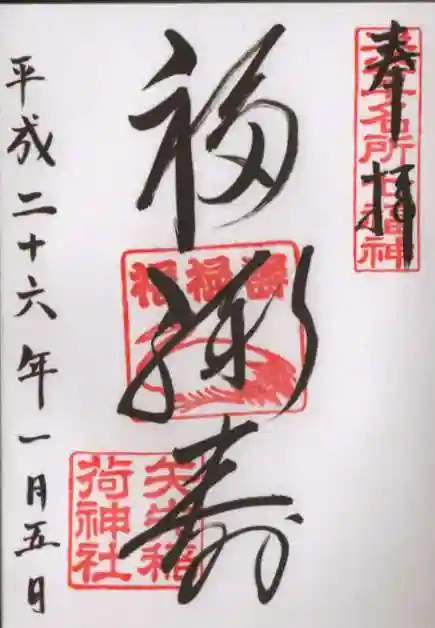 奉拝
浅草名所七福神
福禄寿
福禄壽
矢先稲
荷神社
平成二十六年一月五日